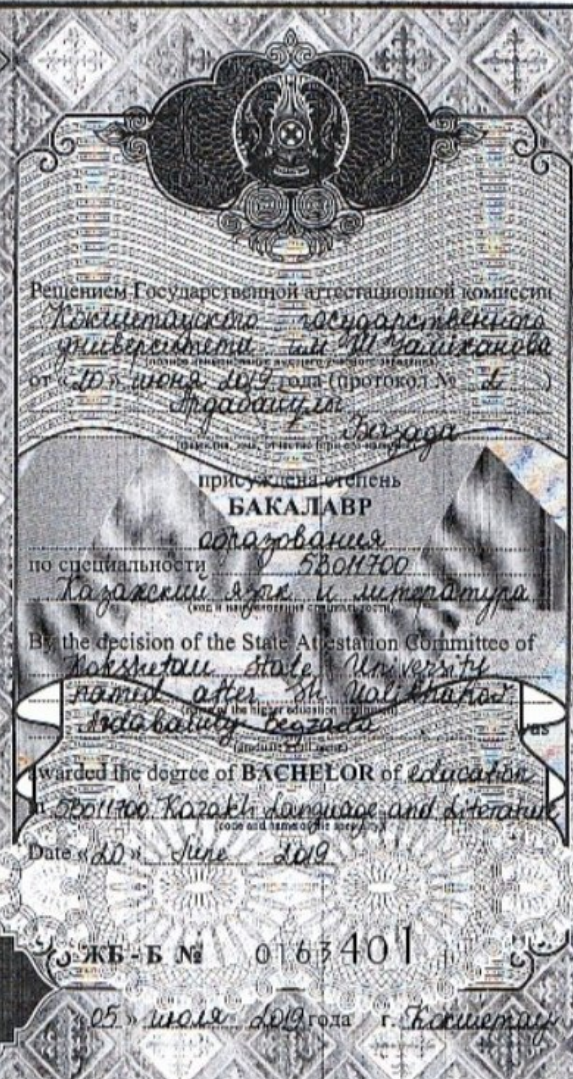 Решением Государственной аттестационной комиссии
Кокшетауского государственного
университета им Ш Уалиханова
(полное наименование высшего учебного заведения)
от «20» июня 2019 года (протокол № 2 )
Ардабайұлы
Бегзада
(фамилия, имя, отчество (при его наличии))
присуждена степень
БАКАЛАВР
образования
по специальности 5В011700
Казахский язык и литература
(код и наименование специальности)
By the decision of the State Attestation Committee of
Kokshetau State University
named after Sh Ualikhanov
(name of the higher education institution)
Ardabaiuly Begzada was
awarded the degree of BACHELOR of education
in 5B011700 Kazakh Language and Literature
(code and name of the specialty)
Date «20» June 2019
ЖБ-Б № 0163401
«05» июля 2019 года г. Кокшетау